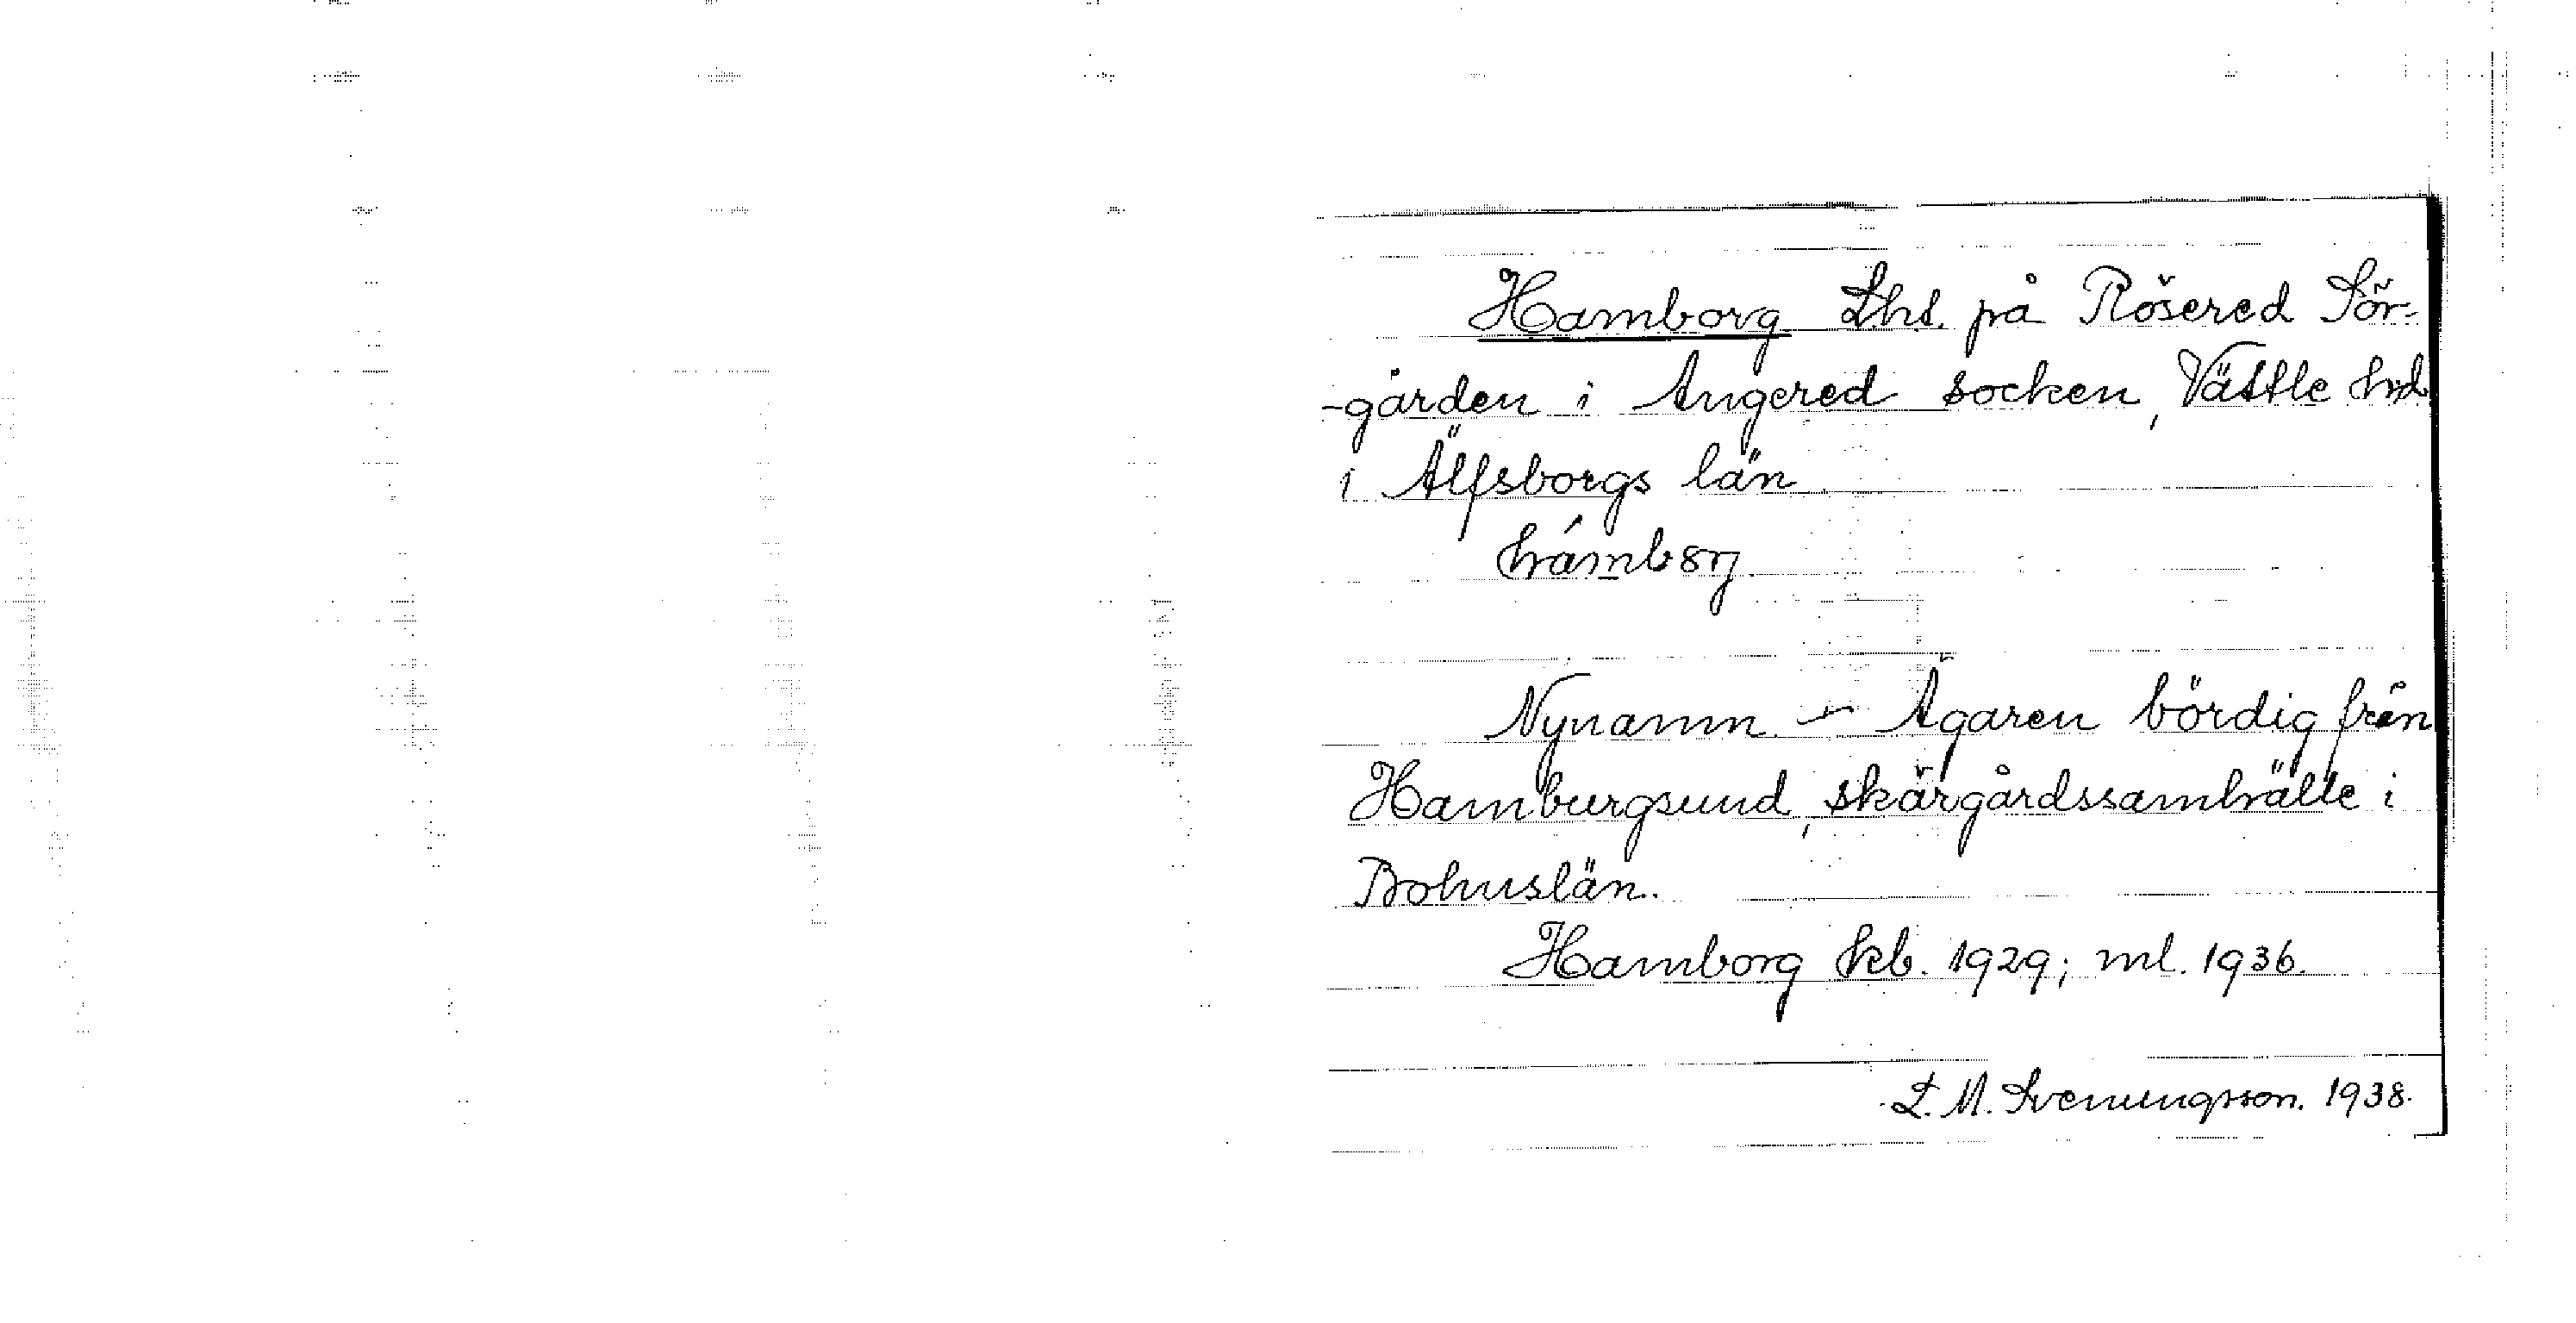 Hamborg Lhs. på Rösered Sör-
-gården i Angered socken, Vättle hrd
i Älfsborgs län
hámbɔrj
Nynamn - Ägaren bördig från
Hamburgsund, skärgårdssamhälle i
Bohuslän.
Hamborg kb. 1929; ml. 1936.
L. M. Svenungsson. 1938.